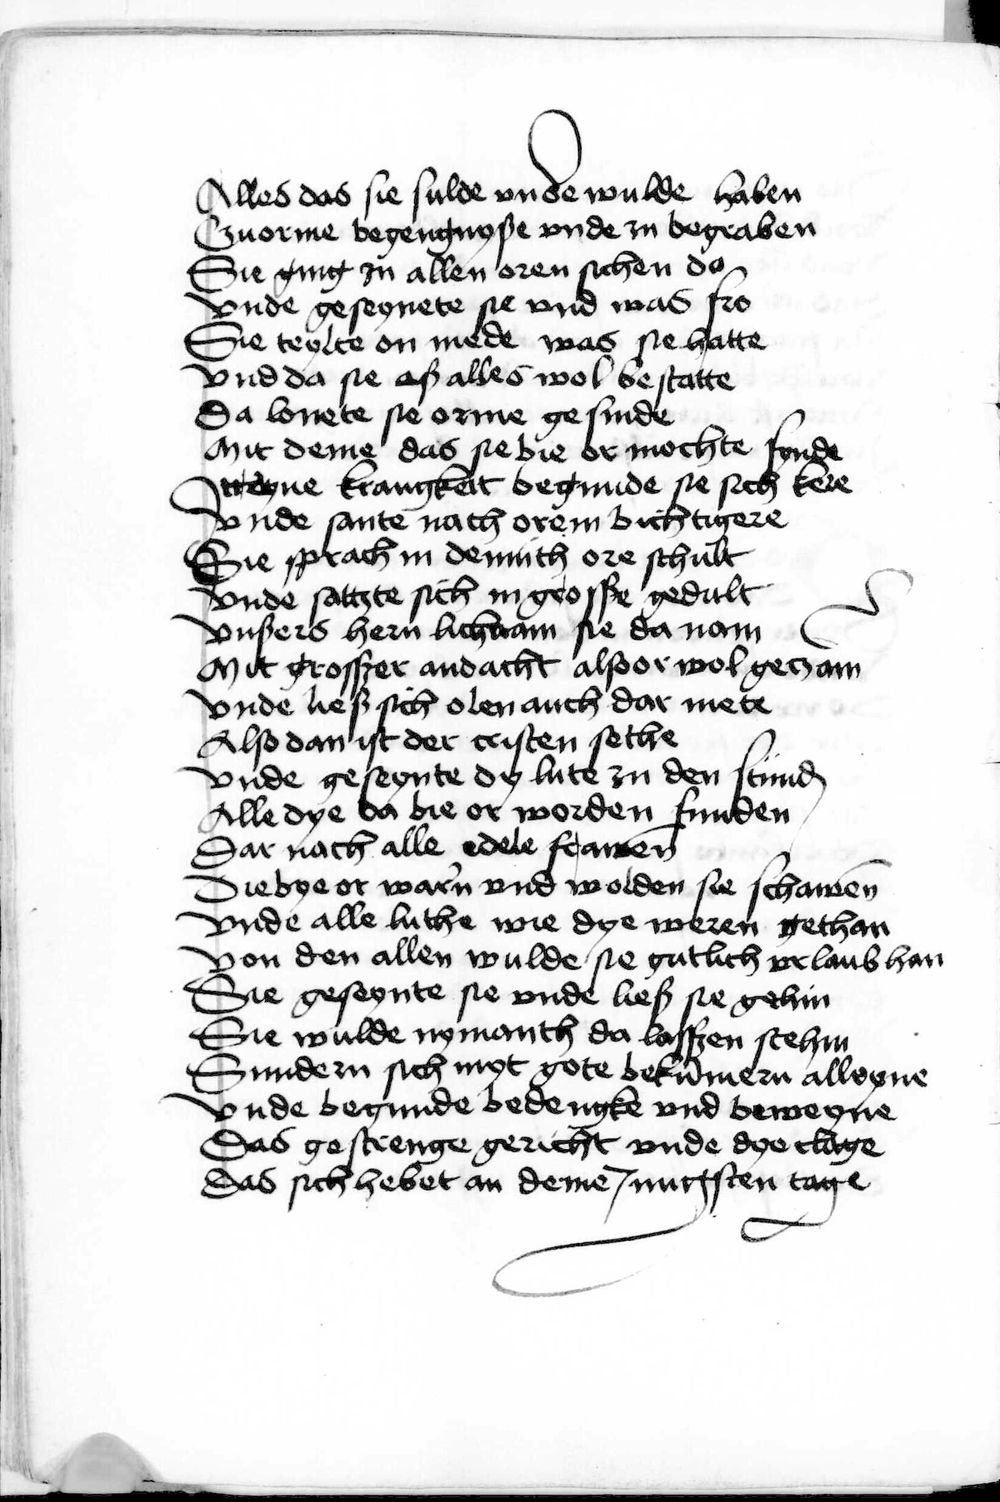 Alles das sie sulde vnde wulde haben
Czuorme begengnyße vnde zu begraben
Sie ging zu allen oren sichen do
vnde geseynete sie vnd was fro
Sie teylte on mede was sie hatte
vnd da sie aß alles wol bestatte
Da lonete sie orme gesinde
Mit deme das sie bie or mochte fynde
In eyne krangkeit begunde sie sich kere
vnde sante nach orem bichtigere
Sie sprach in demuth ore schult
vnde satzte sich in grosße gedult
vnßers hern lichnam sie da nam
Mit grosßer andacht also or wol geczam
vnde ließ sich olen auch dar mete
Also dan ist der cristen sethe
vnde geseynte dy lute zu den stund
Alle dye da bie or worden funden
Dar nach alle edele frawen
Die bye or warn vnd wolden sie schawen
vnde alle luthe wie dye weren gethan
von den allen wulde sie gutlich vrlaub han
Sie geseynte sie vnde ließ sie gehin
Sie wulde nymanth da lasßen stehin
Sundern sich myt gote bekumern alleyne
vnde begunde bedengke vnd beweyne
Das gestrenge gericht vnde dye clage
Das sich hebet an deme jungsten tage